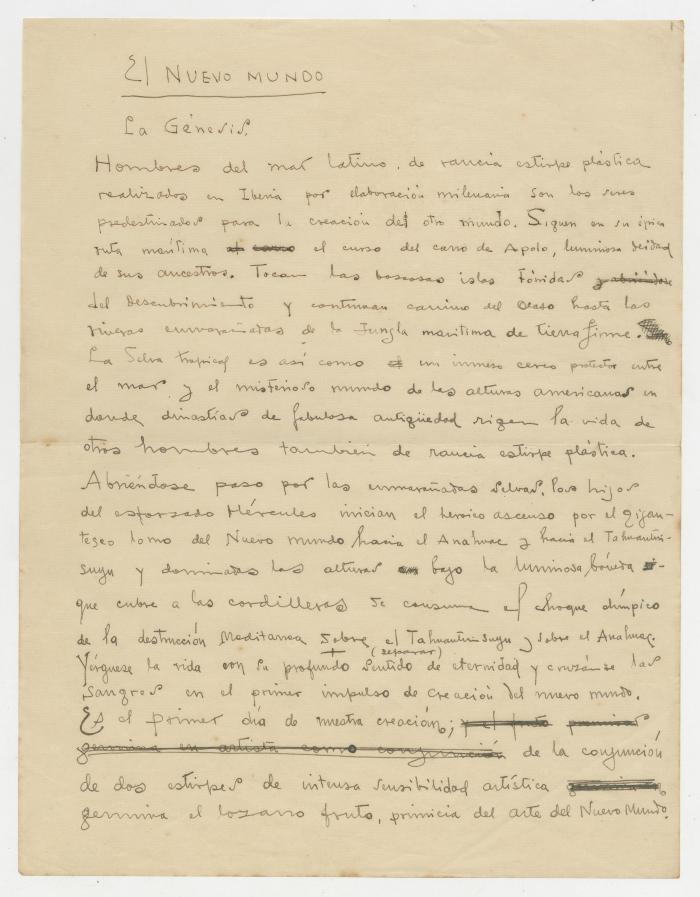 El NUEVO MUNDO
La Génesis.
Hombres del mar latino, de rancia estirpe plástica
realizados en Iberia por elaboración milenaria son los seres
predestinados para la creación del otro mundo. Siguen en su épica
ruta marítima el curso del carro de Apolo, luminosa deidad
de sus ancestros. Tocan las boscosas islas Flóridas
del Descubrimiento y continuan camino del Ocaso hasta las
riveras enmarañadas de la Jungla marítima de tierra firme.
La Selva tropical es así como un inmenso cerco protector entre
el mar y el misterioso mundo de las alturas americanas en
donde dinastías de fabulosa antigüedad rigen la vida de
otros hombres también de rancia estirpe plástica.
Abriéndose paso por las enmarañadas selvas, los hijos
del esforzado Hércules inician el heroico ascenso por el gigan-
tesco lomo del Nuevo mundo hacia el Anahuac y hacia el Tahuantin-
suyu y dominadas las alturas bajo la luminosa bóveda
que cubre a las cordilleras se consuma el choque olímpico
de la destrucción Meditanea Sobre el Tahuantinsuyu y sobre el Anahuac.
(separar)
Yérguese la vida con su profundo sentido de eternidad y crúzanse las
Sangres en el primer impulso de creación del nuevo mundo.
Es el primer día de nuestra creación; y el fruto primicias
germina en artista como conjunción de la conjunción
de dos estirpes de intensa sensibilidad artística
germina el lozano fruto, primicia del arte del Nuevo Mundo.